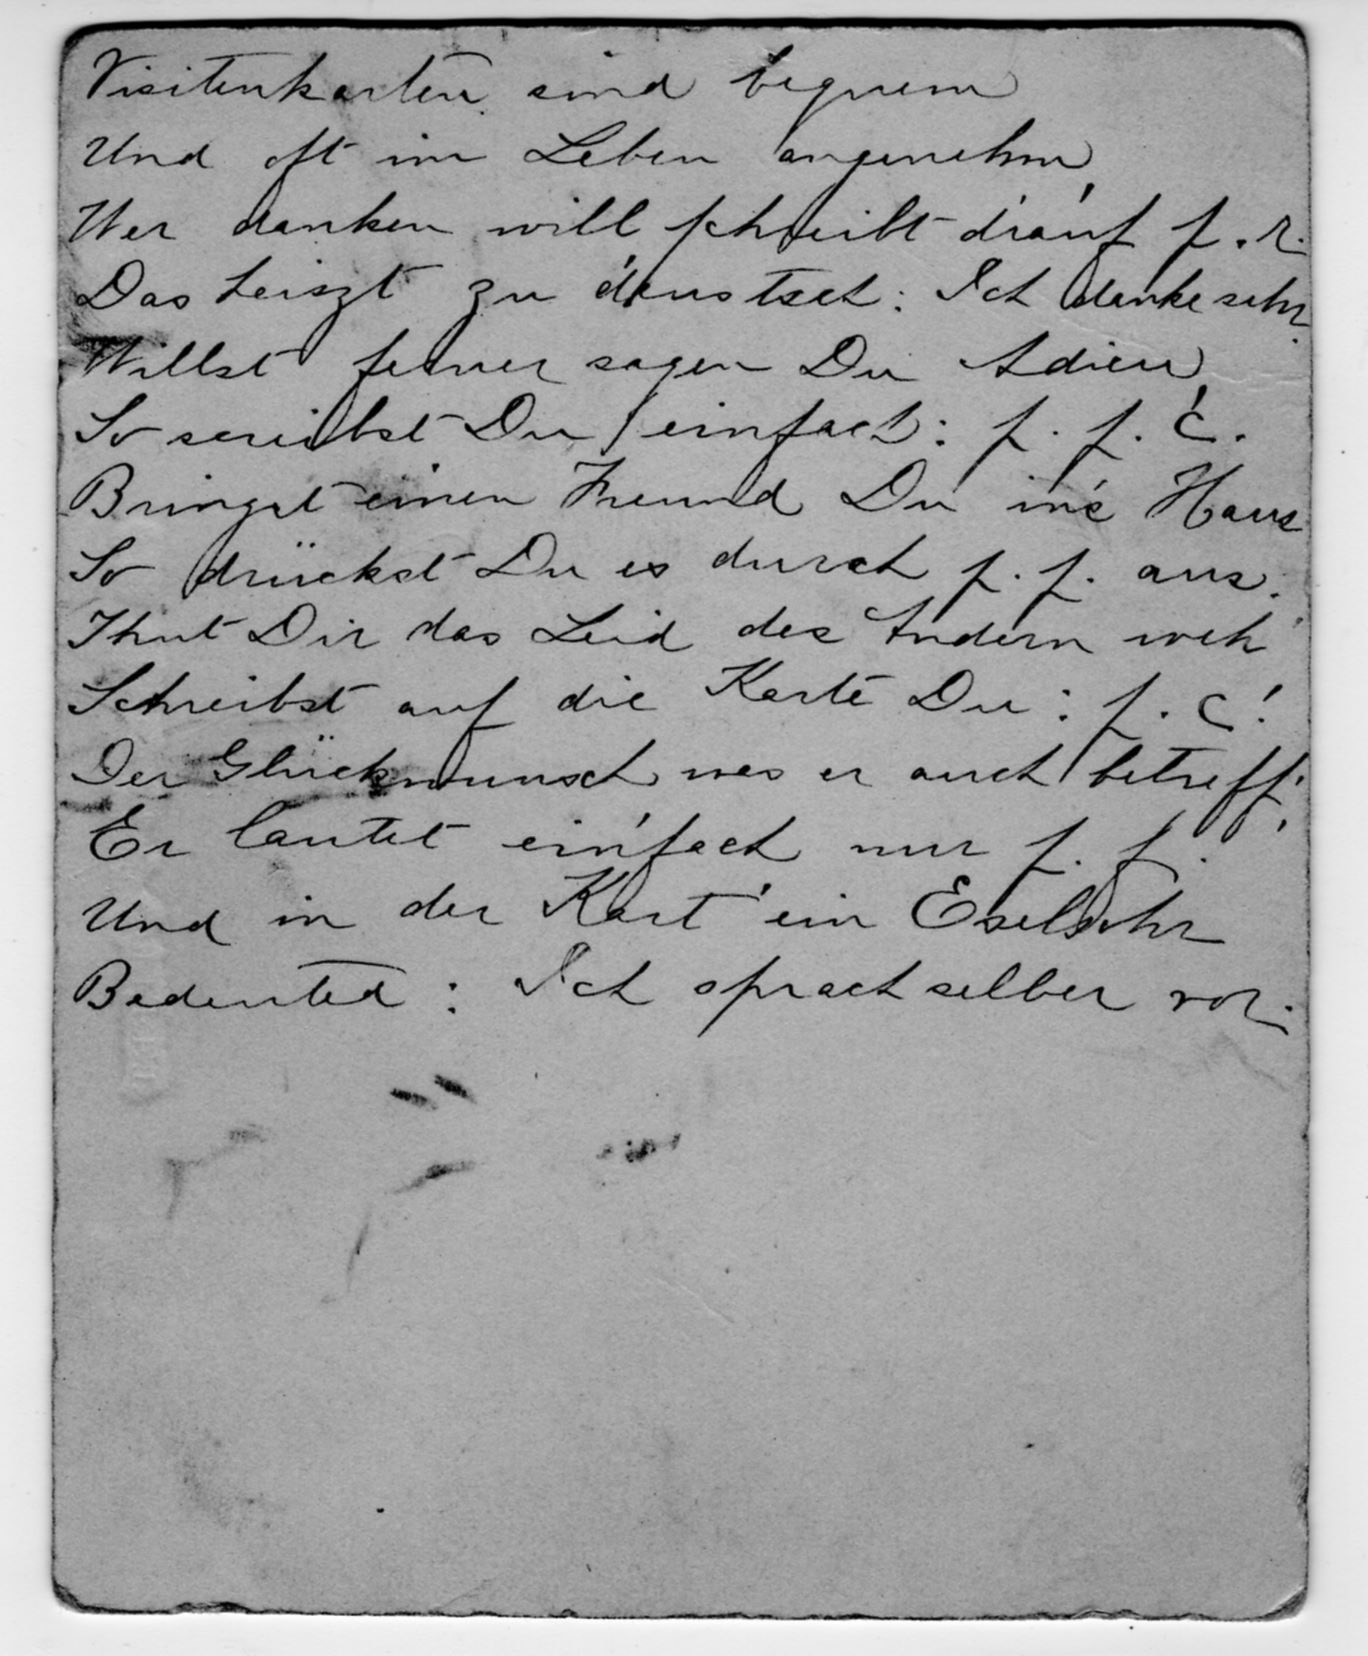 Visitenkarten sind bequem
Und oft im Leben angenehm
Wer danken will schreibt drauf p. r.
Das heiszt zu deustsch: Ich danke sehr.
Willst ferner sagen Du Adieu
So screibst Du einfach: p. p. c.
Bringst einen Freund Du in's Haus
So drückst Du es durch p. p. aus.
Thut Dir das Leid des Andern weh
Schreibst auf die Karte Du: p. c!
Der Glückwunsch was er auch betreff'
Er lautet einfach nur p. f.
Und in der Kart' ein Eselsohr
Bedeuted: Ich sprach selber vor.